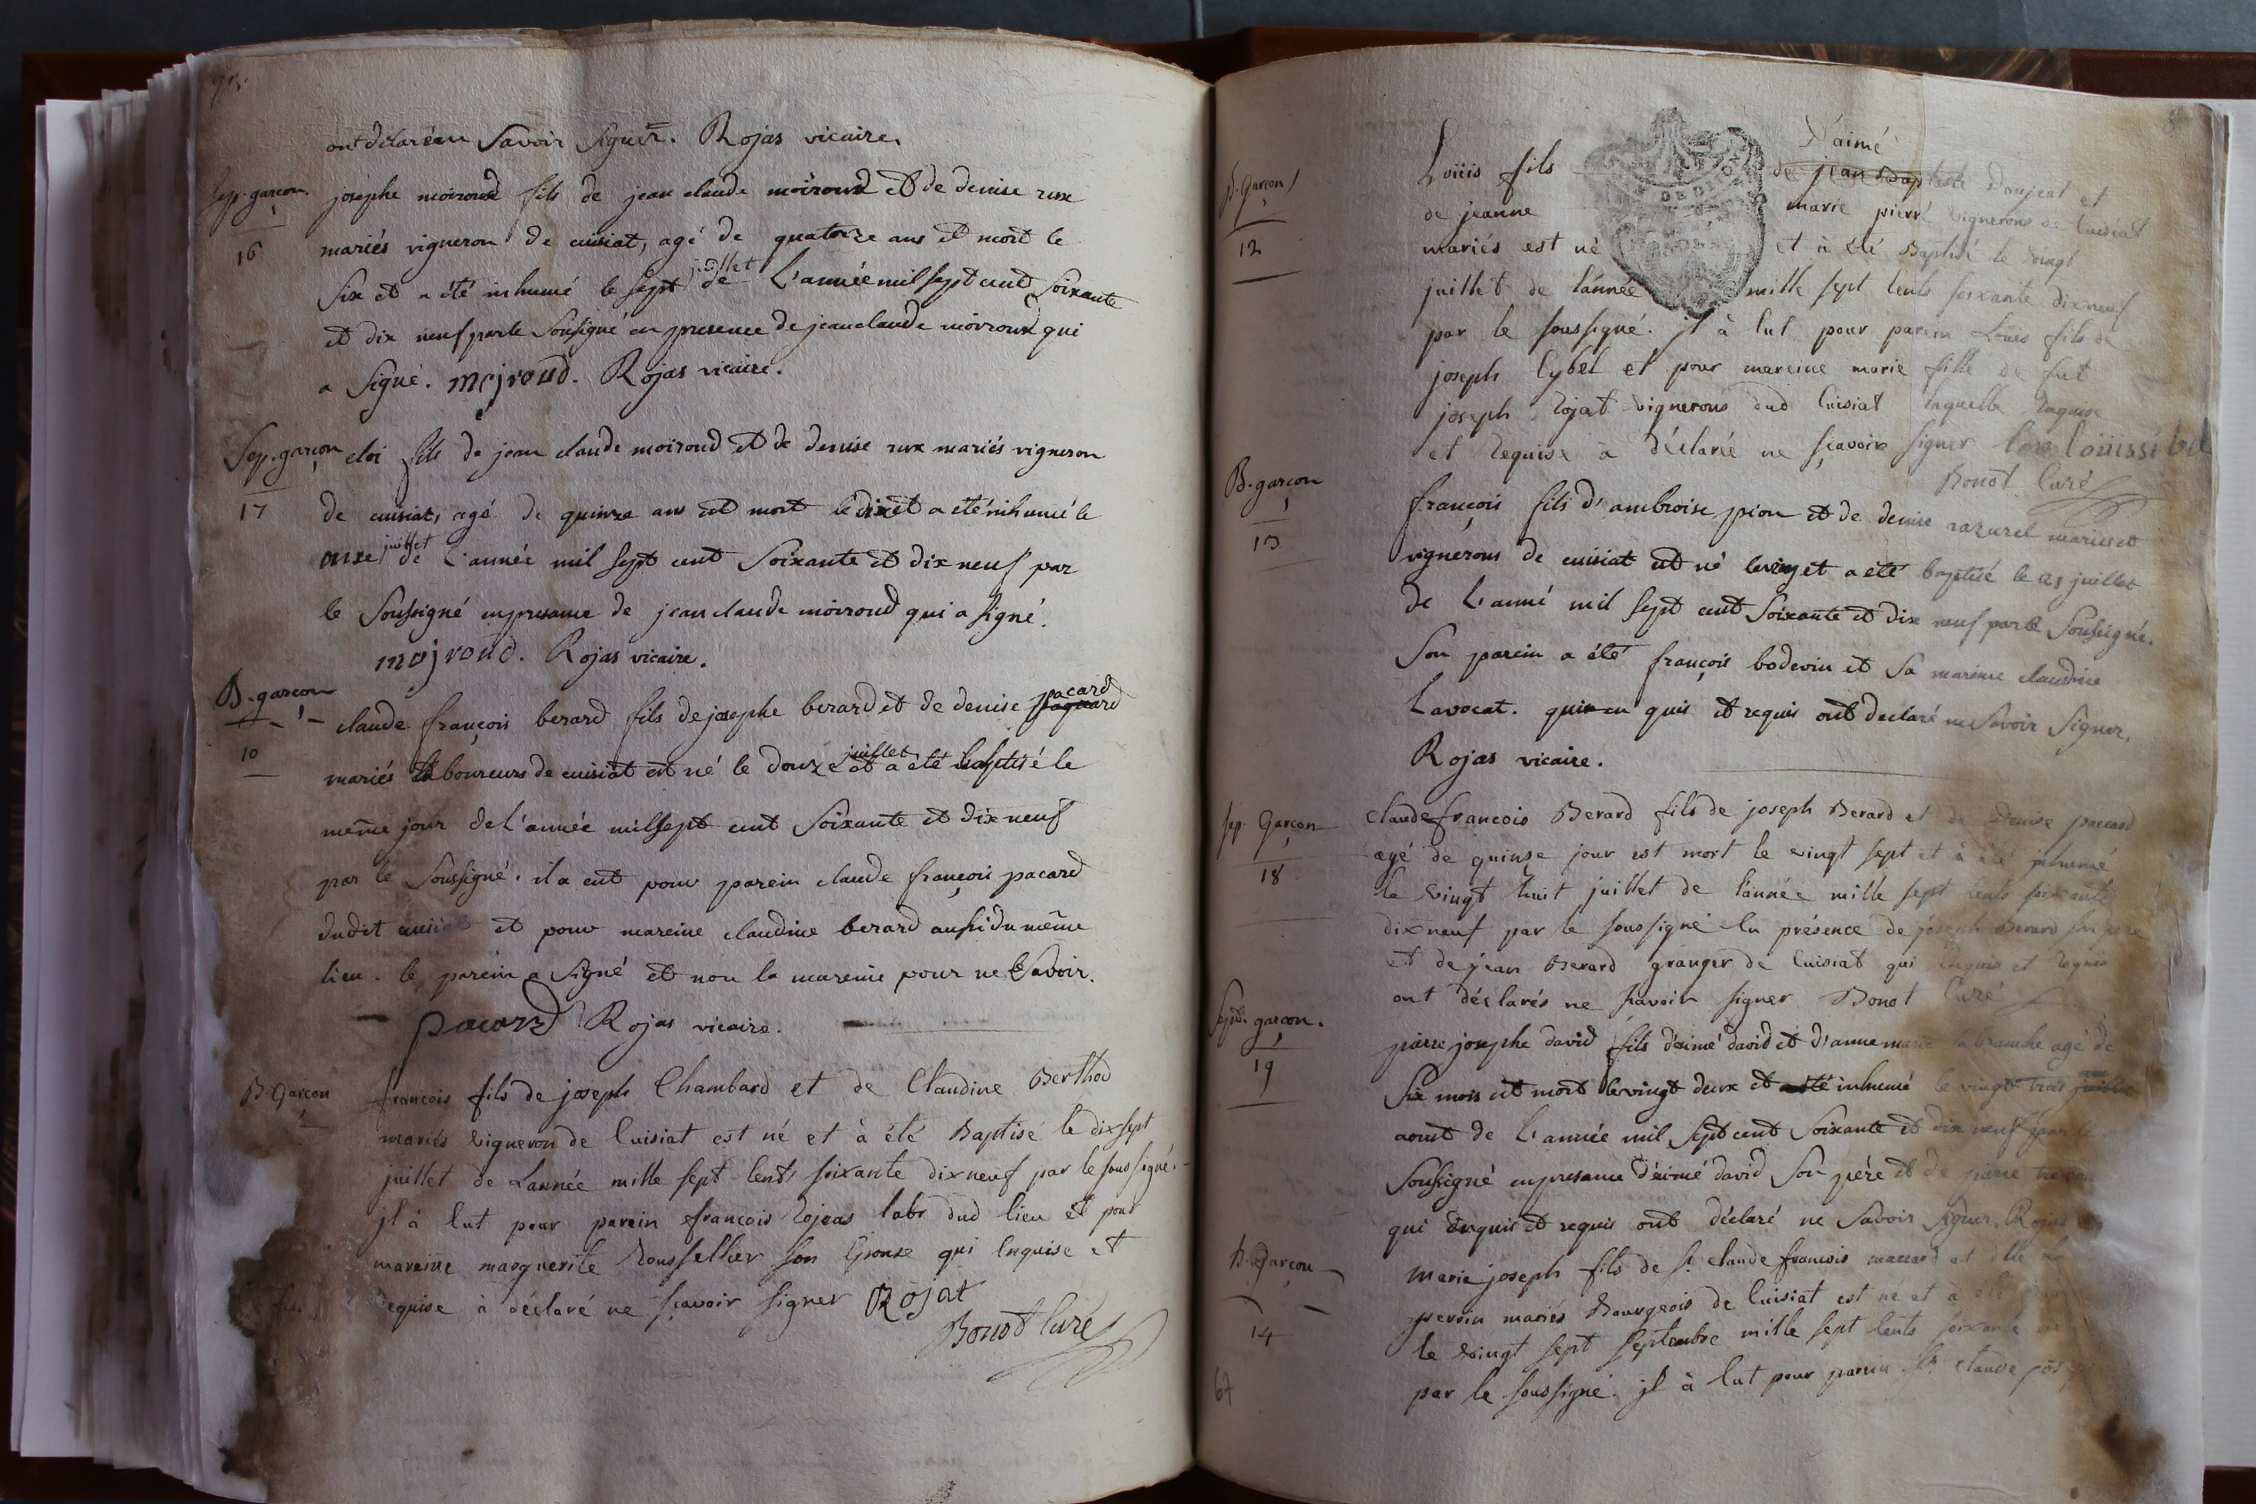 ont déclaré ne Savoir Signer. Rojas vicaire.
Sep. garcon
16
josephe moiroud fils de jean claude moiroud et de denise rux
mariés vigneron de cuisiat, agé de quatorze ans est mort le
Six et a été inhumé le sept juillet de L'année mil sept cent Soixante
et dix neuf par le Sousigné en presence de jean claude moiroud qui
a Signé. mojroud. Rojas vicaire.
Sep. garçon
17
eloi fils de jean claude moiroud et de denise rux mariés vigneron
de cuisiat, agé de quinze ans est mort le dix et a été inhumé le
onze juillet de L'année mil sept cent Soixante et dix neuf par
le Soussigné en presence de jean claude moiroud qui a signé.
mojroud. Rojas vicaire.
B. garçon
10
claude françois berard fils de josephe berard et de denise paquard pacard
mariés laboureurs de cuisiat est né le douze juillet et a été baptisé le
même jour de l'année mil sept cent Soixante et dix neuf
par le Soussigné. il a eut pour parein claude françois pacard
dudit cuisiat et pour mareine claudine berard aussi du même
lieu. le parein a signé et non la mareine pour ne le Savoir.
pacard Rojas vicaire.
B. Garçon
francois fils de joseph Chambard et de Claudine Berthod
mariés vigneron de Cuisiat est né et à été Baptisé le dix sept
juillet de Lannée mille sept Cents soixante dix neuf par le sous signé.
jl à Eut pour parein francois Rojas labr dud lieu et pour
mareine marguerite Rousselher son Epouse qui Enquise et
requise à déclaré ne sçavoir signer Rojat
Bonot Curé
B. Garcon
12
Loüis fils de jean Baptiste D'aimé Danjeat et
de jeanne marie pierre vignerons de Cuisiat
mariés est né et à été Baptisé le vingt
juillet de lánnée mille sept Cents soixante dix neuf
par le soussigné. jl à Eut pour parein Loüis fils de
joseph Cybel et pour mareine marie fille de fut
joseph Rojat vignerons dud Cuisiat laquelle Enquise
et Requise à déclarée ne sçavoir signer
Bonot Curé
B. garcon
13
françois fils d'ambroise pion et de denise razurel mariés et
vignerons de cuisiat est né le vingt et a été baptisé le 21 juillet
de L'anné mil sept cent Soixante et dix neuf par le Soussigné.
Son parein a été françois bodevin et Sa mareine claudine
Lavocat. qui en quis et requis ont declaré ne Savoir Signer.
Rojas vicaire.
Sep. Garçon
18
Claude francois Berard fils de joseph Berard et de Denise paccard
agé de quinze jour est mort le vingt sept et à été jnhumé
le vingt huit juillet de lánnée mille sept Cents soixante
dix neuf par le soussigné En présence de joseph Berard son pere
et de jean Berard granger de Cuisiat qui Enquis et Requis
ont déclarés ne sçavoir signer Bonot Curé
Sep. garçon.
19
pierre josephe david fils d'aimé david et d'anne marie la branche agé de
Six mois est mort le vingt deux et a été inhumé le vingt trois
aout de L'année mil Sept cent Soixante et dix neuf par le
Soussigné en presence d'aimé david Son pére et de pierre
qui Enquis et requis ont déclaré ne Savoir signer. Rojas
B. Garçon
14
Marie joseph fils de sr. claude francois maccard et
perrin mariés Bourgeois de Cuisiat est né et a été
le vingt sept septembre mille sept Cents soixante
par le soussigné. jl à Eut pour parein sr. claude
67